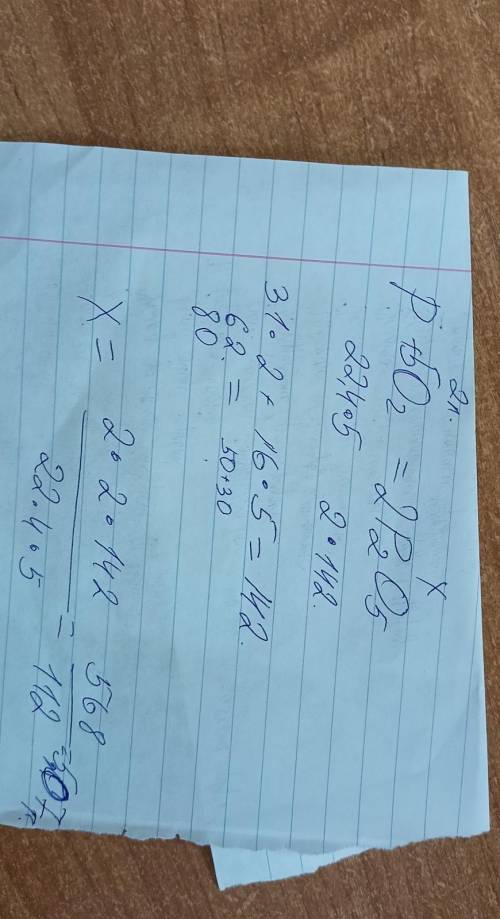 2л. X
P + 5O2 = 2P2O5
22,4•5 2•142.
31•2 + 16•5 = 142.
62 = 50+30
80
X = 2•2•142 / 22.4•5 = 568 / 112 =